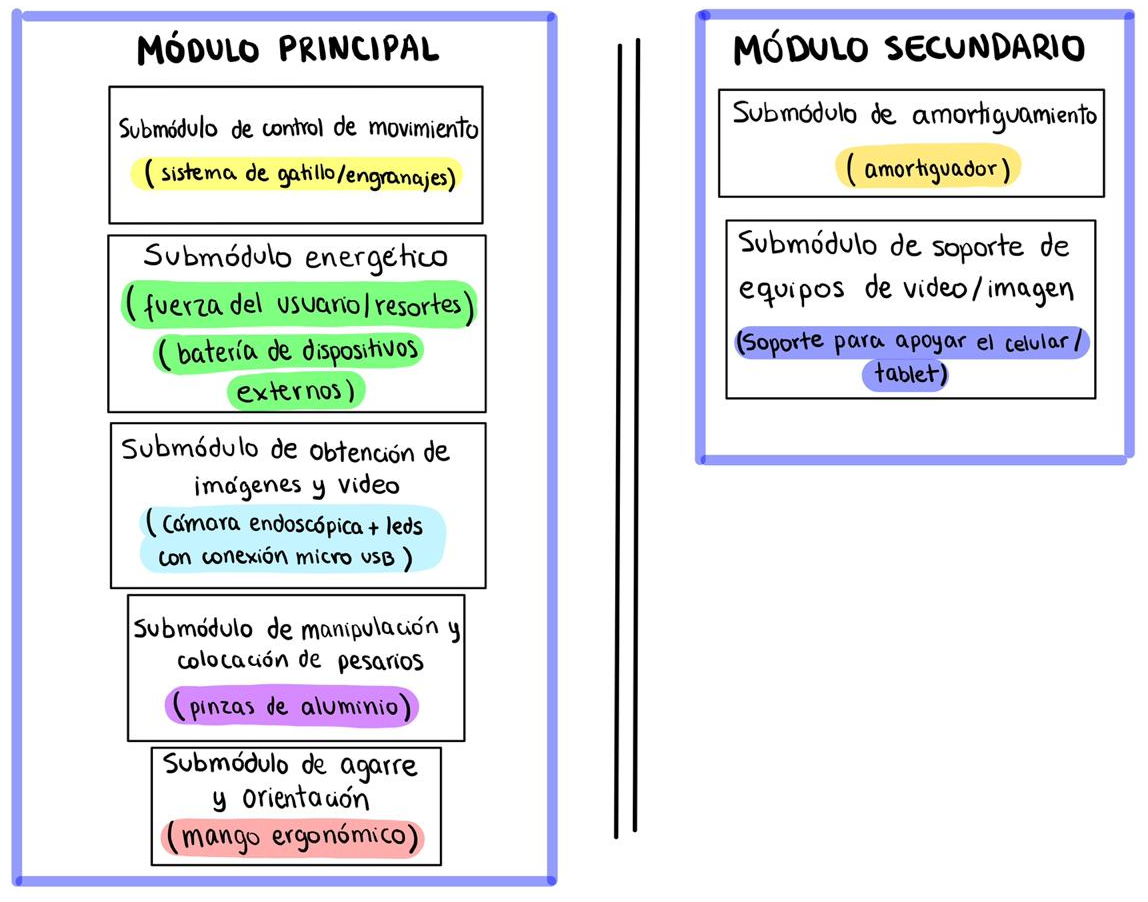 MÓDULO PRINCIPAL
Submódulo de control de movimiento
(sistema de gatillo/engranajes)
Submódulo energético
(fuerza del usuario/resortes)
(batería de dispositivos
externos)
Submódulo de obtención de
imágenes y video
(Cámara endoscópica + leds
con conexión micro USB)
Submódulo de manipulación y
colocación de pesarios
(pinzas de aluminio)
Submódulo de agarre
y orientación
(mango ergonómico)
MÓDULO SECUNDARIO
Submódulo de amortiguamiento
(amortiguador)
Submódulo de soporte de
equipos de video/imagen
(Soporte para apoyar el celular/
tablet)